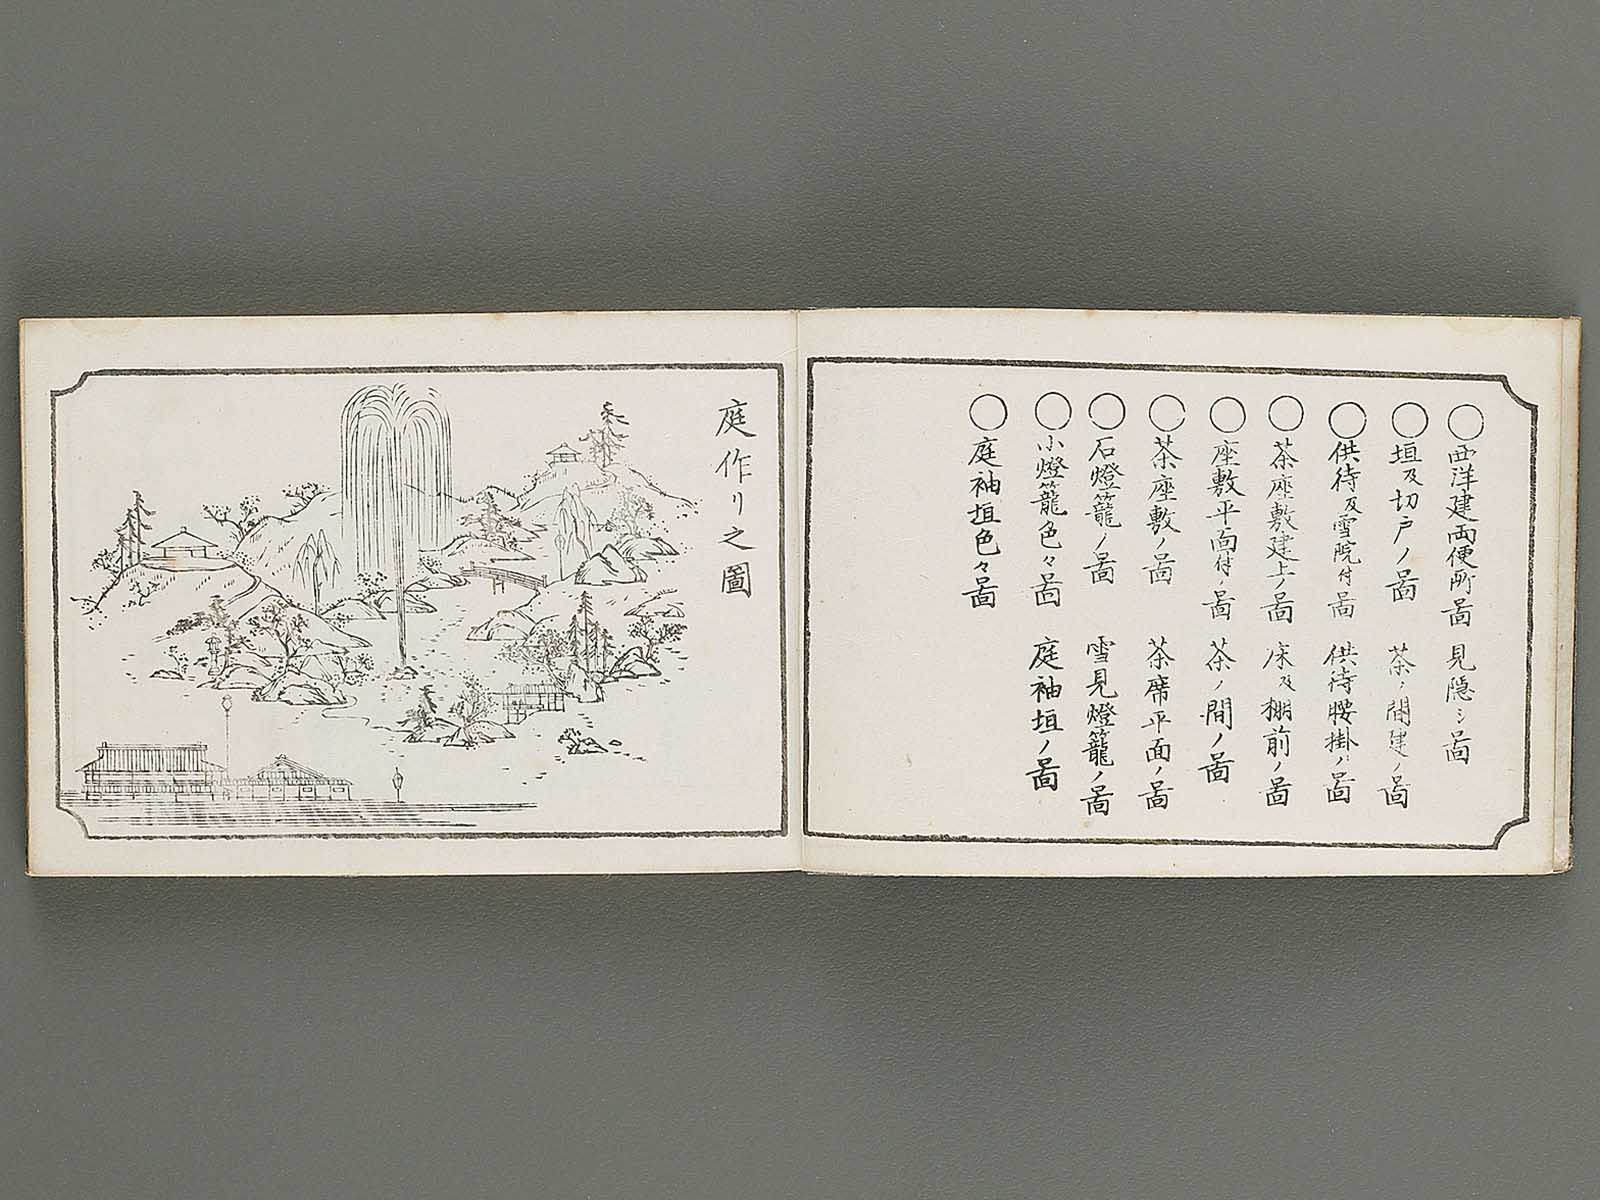 ○西洋建両便所啚 見隠シ啚
○垣及切戸ノ啚 茶ノ間建ノ啚
○供待及雪院付啚 供待腰掛ノ啚
○茶座敷建上ノ啚 床及棚前ノ啚
○座敷平面付ノ啚 茶ノ間ノ啚
○茶座敷ノ啚 茶席平面ノ啚
○石燈籠ノ啚 雪見燈籠ノ啚
○小燈籠色々啚 庭袖垣ノ啚
○庭袖垣色々啚
庭作リ之圖